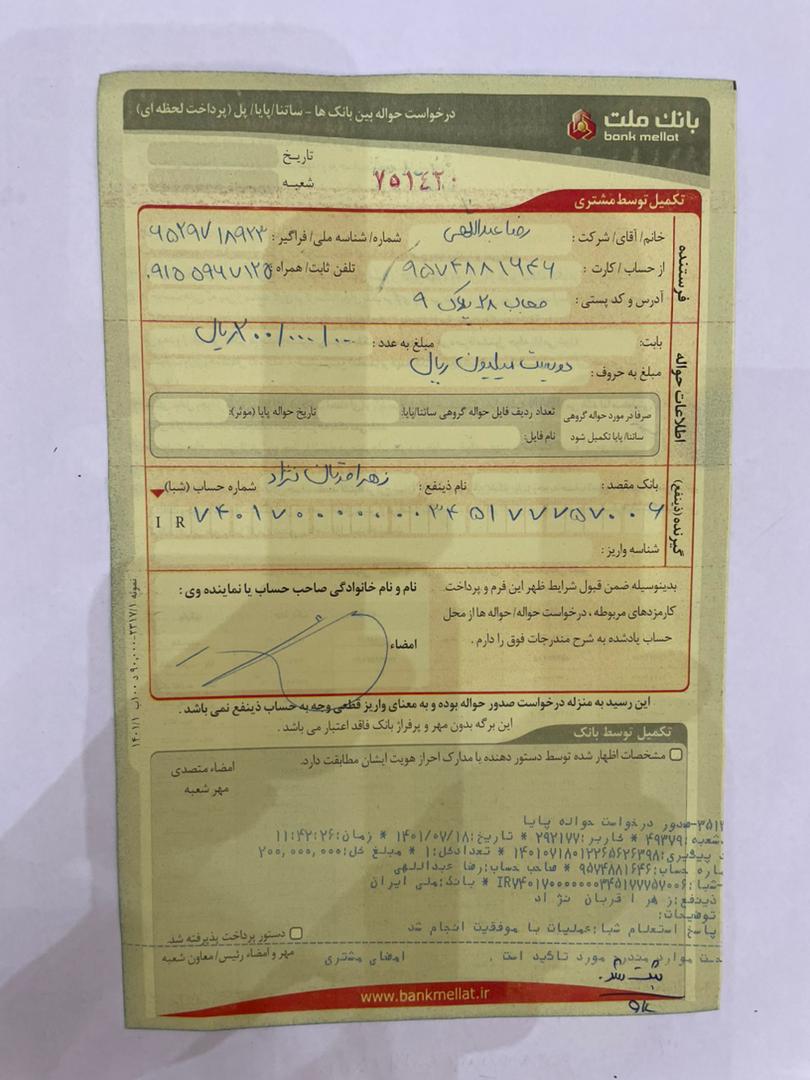 بانک ملت
bank mellat
درخواست حواله بین بانک ها - ساتنا/پایا/ پل (پرداخت لحظه ای)
تاریخ
شعبه
۷۵۶۴۲۰
تکمیل توسط مشتری
فرستنده
خانم/ آقای/ شرکت : رضا عبداللهی شماره/ شناسه ملی/ فراگیر : ۶۵۲۹۷۱۸۹۲۳
از حساب/ کارت : ۹۵۷۴۸۸۱۶۴۶ تلفن ثابت/ همراه : ۰۹۱۵۵۹۴۷۱۲۵
آدرس و کد پستی : ۲۸ پلاک ۹
اطلاعات حواله
بابت: مبلغ به عدد : ۲۰۰/۰۰۰/۰۰۰ ریال
مبلغ به حروف : دویست میلیون ریال
صرفاً در مورد حواله گروهی ساتنا/ پایا تکمیل شود
تعداد ردیف فایل حواله گروهی ساتنا/پایا: تاریخ حواله پایا (موثر):
نام فایل:
گیرنده (ذینفع)
بانک مقصد : نام ذینفع : زهرا قربان نژاد شماره حساب (شبا)
I R ۷۴۰۱۷۰۰۰۰۰۰۰۰۳۴۵۱۷۷۷۵۷۰۰۶
شناسه واریز :
بدینوسیله ضمن قبول شرایط ظهر این فرم و پرداخت نام و نام خانوادگی صاحب حساب یا نماینده وی :
کارمزدهای مربوطه ، درخواست حواله/ حواله ها از محل
حساب یادشده به شرح مندرجات فوق را دارم . امضاء
این رسید به منزله درخواست صدور حواله بوده و به معنای واریز قطعی وجه به حساب ذینفع نمی باشد .
این برگه بدون مهر و پرفراژ بانک فاقد اعتبار می باشد .
تکمیل توسط بانک
مشخصات اظهار شده توسط دستور دهنده با مدارک احراز هویت ایشان مطابقت دارد.
امضاء متصدی
مهر شعبه
۳۵۱۲-صدور درخواست حواله پایا
شعبه:۴۹۳۷۹ * کاربر:۲۹۲۱۷۷ * تاریخ:۱۴۰۱/۰۷/۱۸ * زمان:۱۱:۴۲:۲۶
پیگیری:۱۴۰۱۰۷۱۸۰۱۲۲۶۵۶۲۶۳۹۸ * تعدادکل:۱ * مبلغ کل:۲۰۰,۰۰۰,۰۰۰
حساب:۹۵۷۴۸۸۱۶۴۶ * صاحب حساب:رضا عبداللهی
شبا:IR۷۴۰۱۷۰۰۰۰۰۰۰۰۳۴۵۱۷۷۷۵۷۰۰۶ * بانک:ملی ایران
ذینفع:زهرا قربان نژاد
توضیحات:
پاسخ استعلام شبا:عملیات با موفقیت انجام شد
موارد مندرج مورد تاکید است . امضای مشتری
دستور پرداخت پذیرفته شد.
مهر و امضاء رئیس/ معاون شعبه
ثبت شد.
www.bankmellat.ir